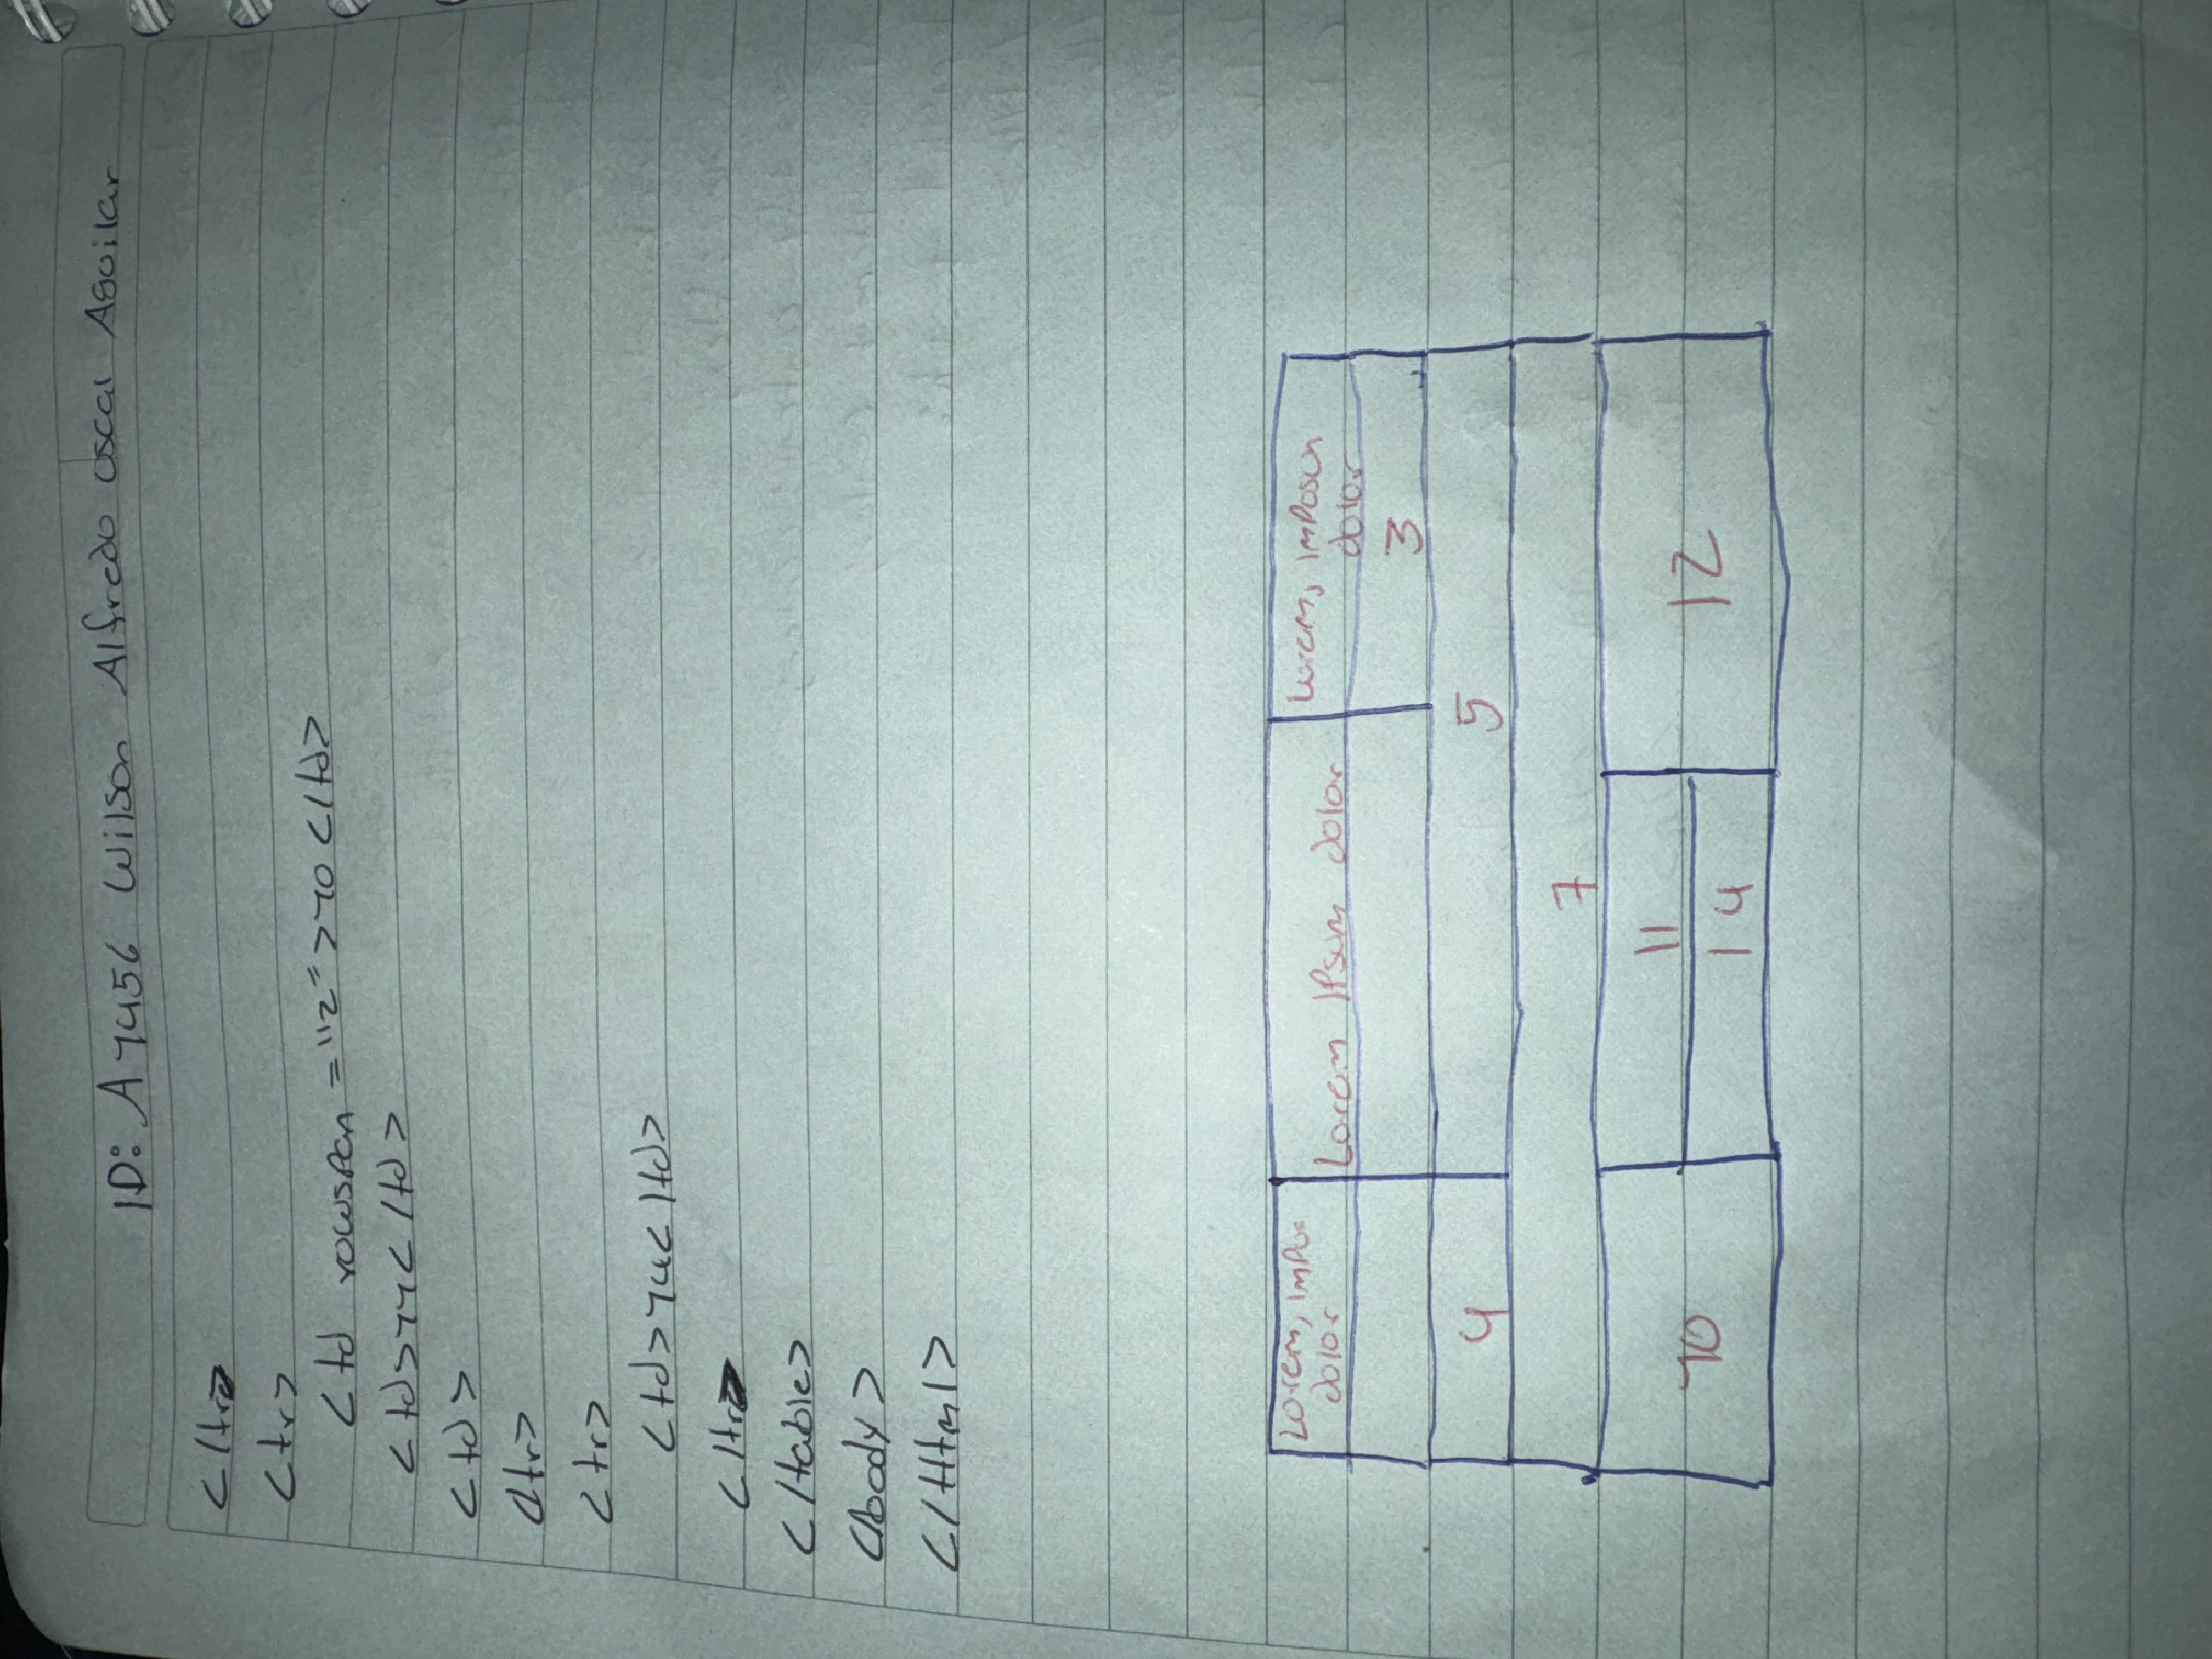 ID: A7456 Wilson Alfredo Oscal Agoilar
</tr>
<tr>
<td rowspan="2">70</td>
<td>77</td>
<td>
</tr>
<tr>
<td>74</td>
</tr>
</table>
</body>
</Html>
Lorem, Impos dolor
Lorem Ipsum dolor
Lorem, Imposun dolor
3
4
5
7
70
11
12
14